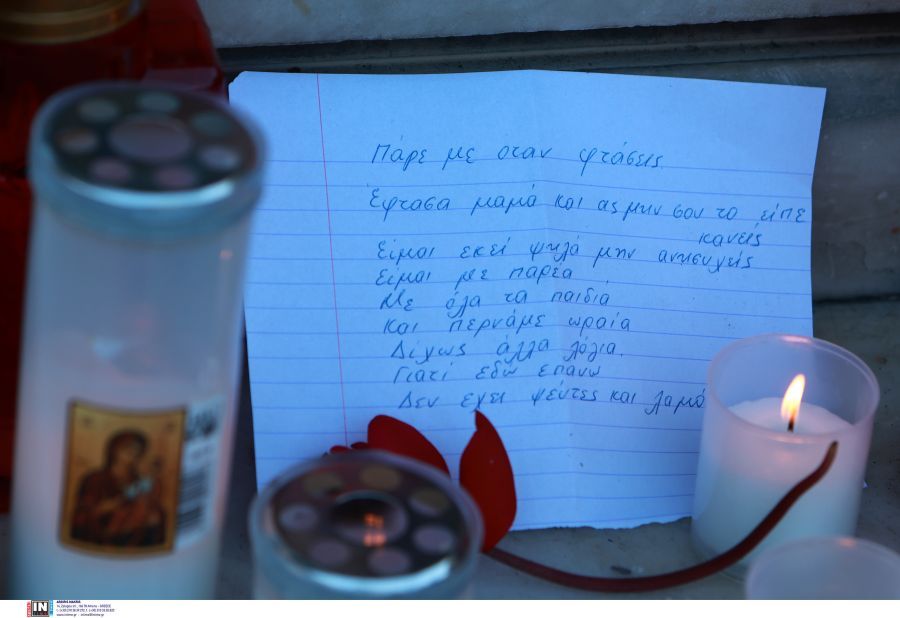 Πάρε με οταν φτάσεις.
Έφτασα μαμά και ας μην σου το είπε
κανείς
Είμαι εκεί ψηλά μην ανησυχείς
Είμαι με παρέα
Με όλα τα παιδιά
Και περνάμε ωραία
Δίχως άλλα λόγια.
Γιατί εδώ επάνω
Δεν έχει ψεύτες και λαμό
IN